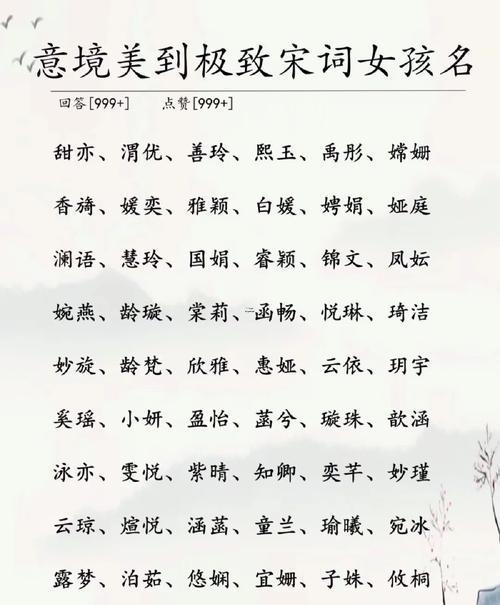 意境美到极致宋词女孩名
回答[999+] 点赞[999+]
甜亦、渭优、善玲、熙玉、禹彤、嫦姗
香旖、媛奕、雅颖、白媛、娉娟、娅庭
澜语、慧玲、国娟、睿颖、锦文、凤妘
婉燕、龄璇、棠莉、函畅、悦琳、琦洁
妙旋、龄梵、欣雅、惠娅、云依、玥宇
奚瑶、小妍、盈怡、菡兮、璇珠、歆涵
泳亦、雯悦、紫晴、知卿、奕芊、妙瑾
云琼、煊悦、涵菡、童兰、瑜曦、宛冰
露梦、泊茹、悠娴、宜姗、子姝、攸桐